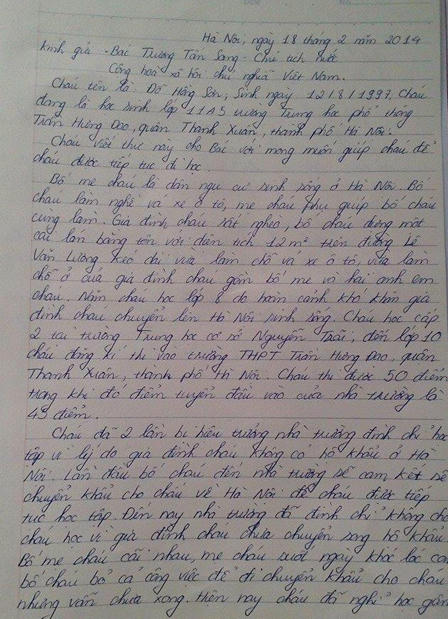 Hà Nội, ngày 18 tháng 2 năm 2014
Kính gửi - Bác Trương Tấn Sang - Chủ tịch nước
Cộng hoà xã hội chủ nghĩa Việt Nam.
Cháu tên là Đỗ Hồng Sơn, Sinh ngày 12/8/1997. Cháu
đang là học sinh lớp 11A5 trường Trung học phổ thông
Trần Hưng Đạo, quận Thanh Xuân, thành phố Hà Nội.
Cháu viết thư này cho Bác với mong muốn giúp cháu để
cháu được tiếp tục đi học.
Bố mẹ cháu là dân ngụ cư sinh sống ở Hà Nội. Bố
cháu làm nghề vá xe ô tô, mẹ cháu phụ giúp bố cháu
cùng làm. Gia đình cháu rất nghèo, bố cháu dựng một
cái lán bằng tôn với diện tích 12m² trên đường Lê
Văn Lương kéo dài vừa làm chỗ vá xe ô tô, vừa làm
chỗ ở của gia đình cháu gồm bố mẹ và hai anh em
cháu. Năm cháu học lớp 8 do hoàn cảnh khó khăn gia
đình cháu chuyển lên Hà Nội sinh sống. Cháu học cấp
2 tại trường Trung học cơ sở Nguyễn Trãi, đến lớp 10
cháu đăng kí thi vào trường THPT Trần Hưng Đạo, quận
Thanh Xuân, thành phố Hà Nội. Cháu thi được 50 điểm
trong khi đó điểm tuyển đầu vào của nhà trường là
43 điểm.
Cháu đã 2 lần bị hiệu trưởng nhà trường đình chỉ học
tập vì lý do gia đình cháu không có hộ khẩu ở Hà
Nội. Lần đầu bố cháu đến nhà trường sẽ cam kết sẽ
chuyển khẩu cho cháu về Hà Nội để cháu được tiếp
tục học tập. Đến nay nhà trường đã đình chỉ không cho
cháu học vì gia đình cháu chưa chuyển song hộ khẩu.
Bố mẹ cháu cãi nhau, mẹ cháu suốt ngày khóc lóc còn
bố cháu bỏ cả công việc để đi chuyển khẩu cho cháu
nhưng vẫn chưa xong. Hiện nay cháu đã nghỉ học gần